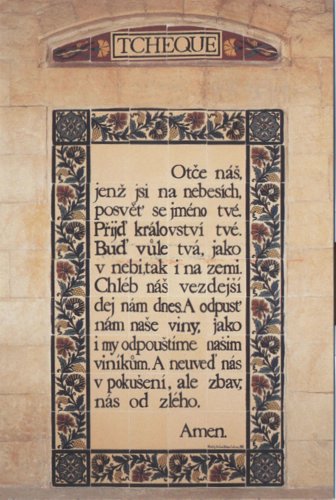 TCHEQUE
Otče náš,
jenž jsi na nebesích,
posvěť se jméno tvé.
Přijď království tvé.
Buď vůle tvá, jako
v nebi,tak i na zemi.
Chléb náš vezdejší
dej nám dnes.A odpusť
nám naše viny, jako
i my odpouštíme našim
viníkům.A neuveď nás
v pokušení, ale zbav,
nás od zlého.
Amen.